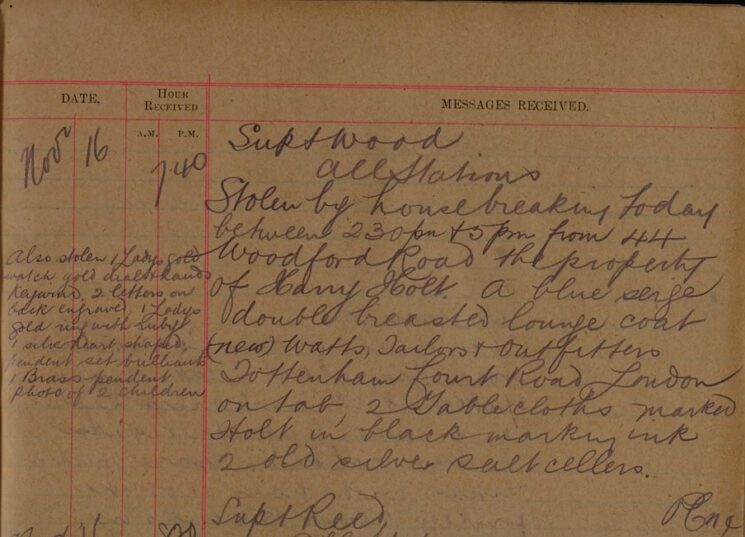 DATE.
HOUR RECEIVED
MESSAGES RECEIVED.
A.M. P.M.
Novr 16
7.40
Supt Wood
All Stations
Stolen by housebreaking today
between 2 30 pm & 5 pm from 44
Woodford Road the property
of Harry Holt. A blue serge
double breasted lounge coat
(new) Watts, Tailors & outfitters
Tottenham Court Road London
on tab, 2 Tablecloths marked
Holt in black marking ink
2 old silver salt cellers.
Also stolen 1 Ladys gold
watch gold dial & hands
Keywind, 2 letters on
back engraved, 1 Ladys
gold ring with Ruby
1 silver heart shaped
pendent set brilliants
1 Brass pendent
photo of 2 children
Supt Reed